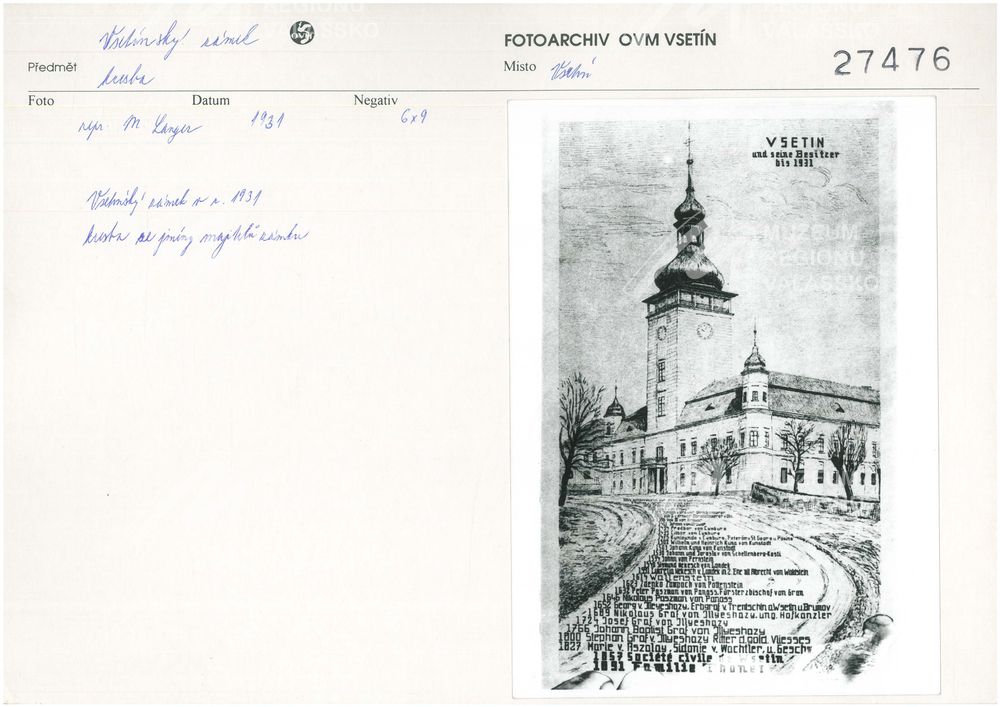 Vsetínský zámek
OVM
FOTOARCHIV OVM VSETÍN
Předmět kresba
Místo Vsetín
27476
Foto Datum Negativ
repr. M Langer 1931 6x9
Vsetínský zámek v r. 1931
kresba se jmény majitelů zámku
VSETIN
und seine Besitzer
bis 1931
MUZEUM
REGIONU
VALAŠSKO
Wilhelm und Heinrich Kuna von Kunstadt
Johann Kuna von Kunstadt
Johann und Jaroslav von Schellenberg-Kostí
Johann von Pernstein
Nekesch von Landek
Lucretia Nekesch v. Landek in 2. Ehe mit Albrecht von Waldstein
Wallenstein
Zdenko Zampach von Pottenstein
Peter Pazman von Panasz, Fürsterzbischof von Gran
1646 Nikolaus Pazman von Panasz
1652 Georg v. Illyeshazy, Erbgraf v. Trentschin a. Wsetin u. Brumov
1689 Nikolaus Graf von Illyeshazy, ung. Hofkanzler
1725 Josef Graf von Illyeshazy
1766 Johann Baptist Graf von Illyeshazy
1800 Stephan Graf v. Illyeshazy Ritter d. gold. Vliesses
1827 Marie v. Aszalay, Sidonie v. Wachtler, u. Gesch.
1857 Société civile de Wsetin
1891 Familie Thonet